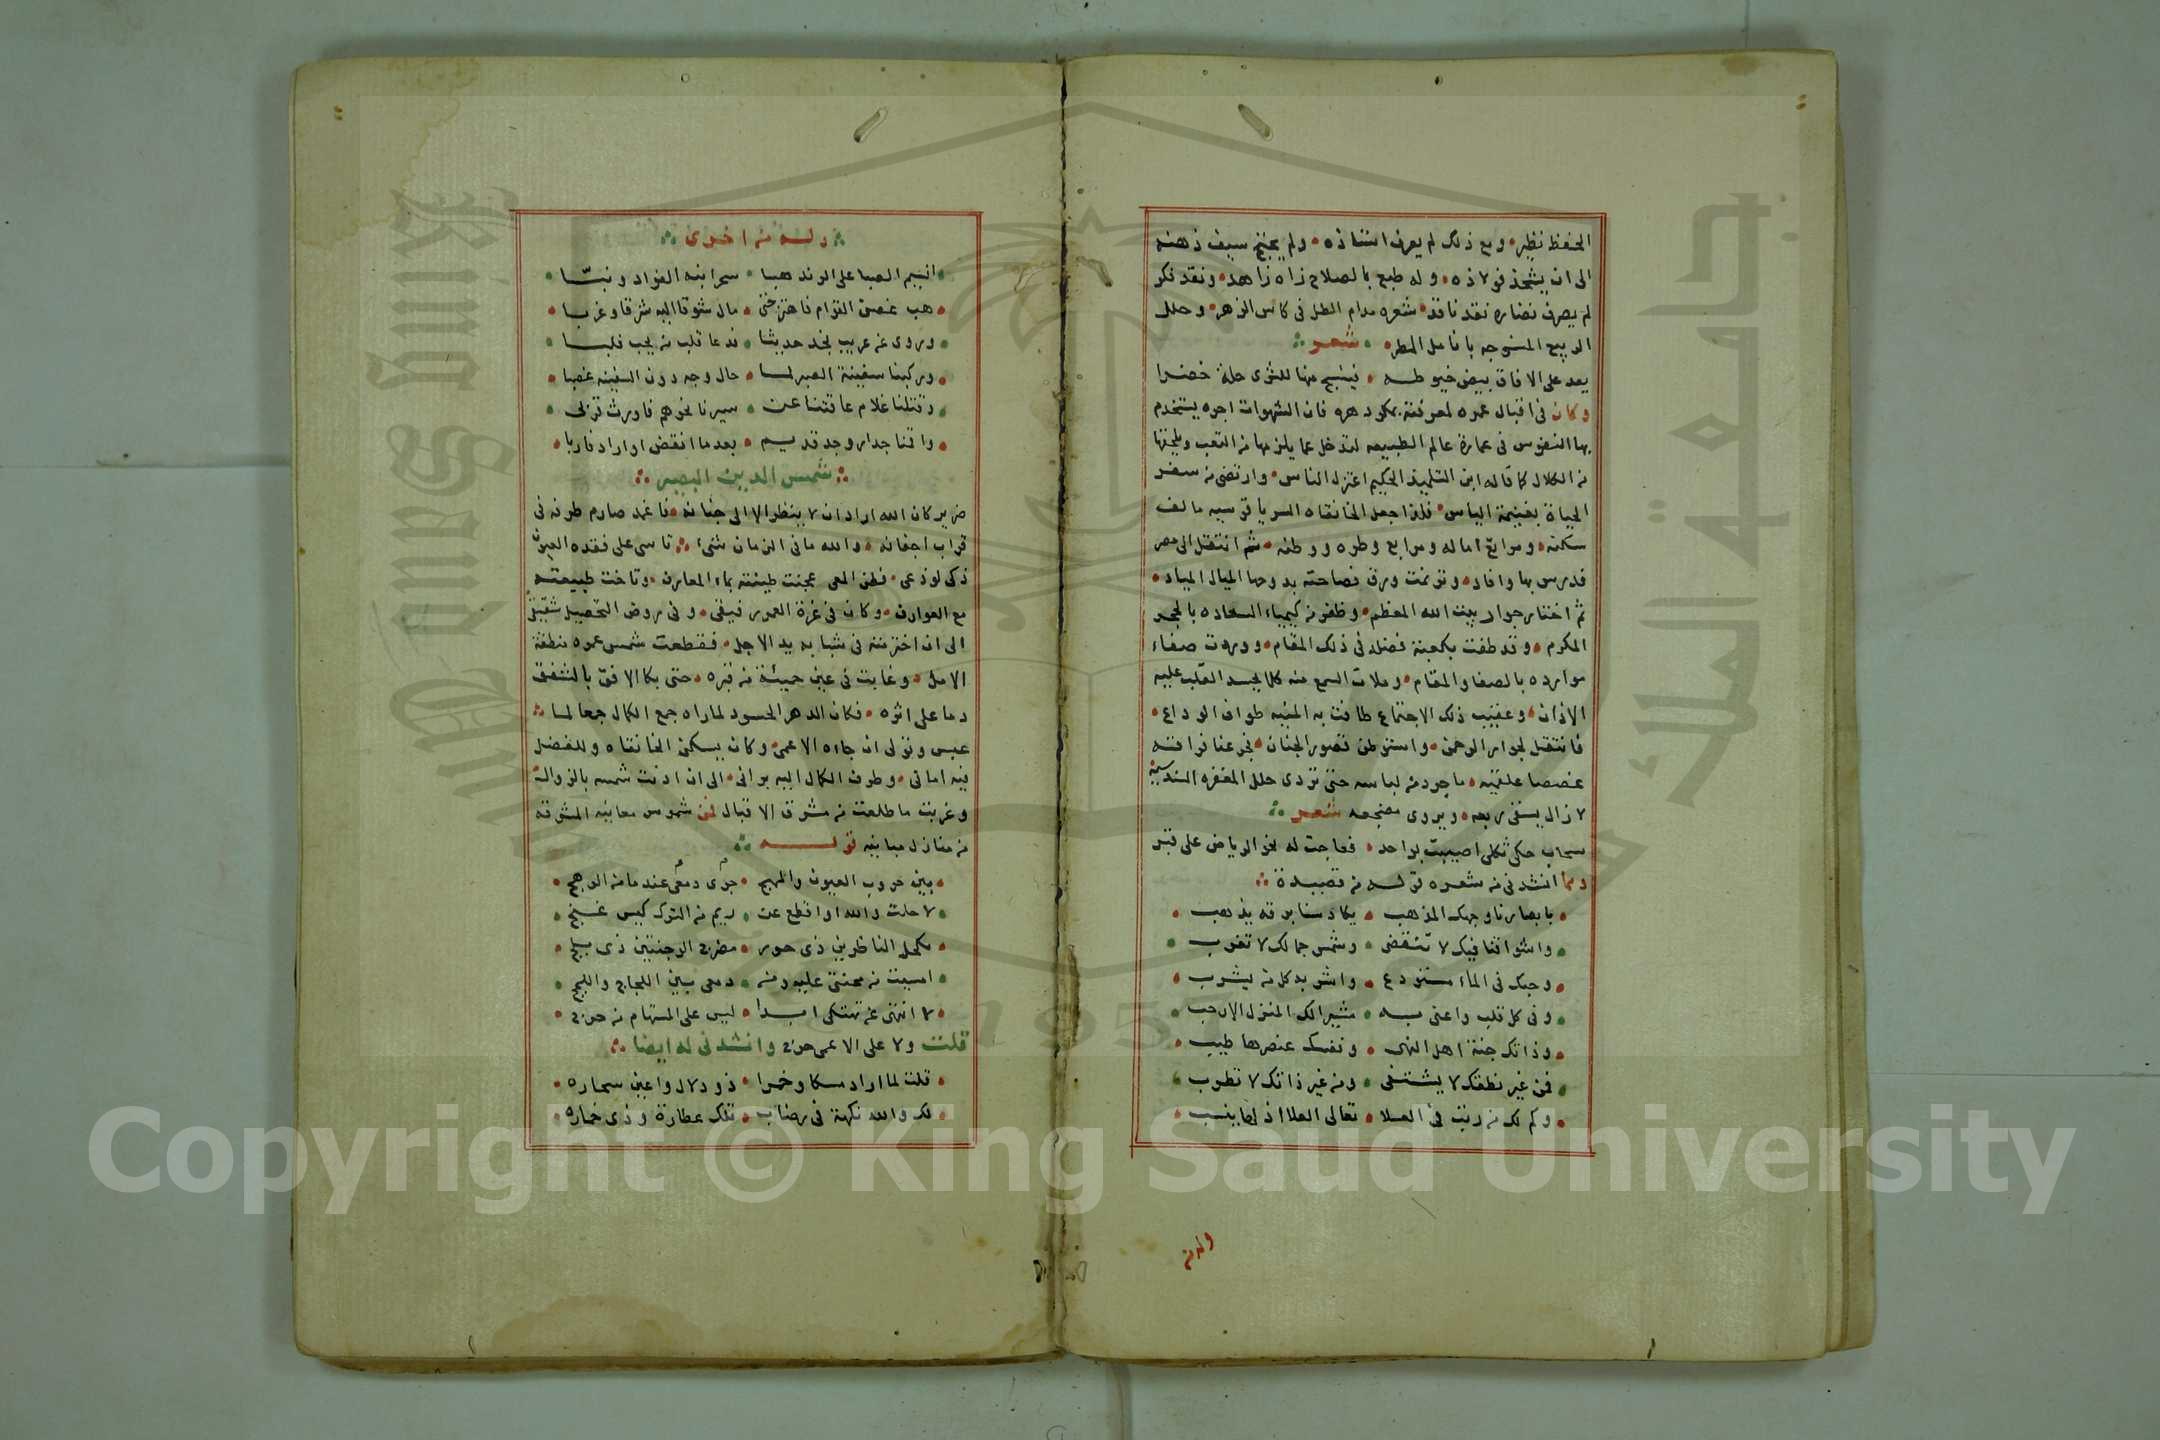 الحفظ نظير ولم ذلك لم يعرف استاذه ولم يحتج سيف ذهنه
الى ان يشحذ فولاذه وله طبع بالصلاح زاه زاهد ونقد فكر
لم يصرف نضاره نقد ناقد شعره مدام الطل في كاس الزهر وحلل
الربيع المنسوجه بانامل المطر شعر
يمد على الافاق بيض خيوطه فينسج منها للثرى حلة خضرا
وكان في اقبال عمره لمعرفته بمكر دهره فان الشهوات اجره يستخدم
بها النفوس في عمارة عالم الطبيعه لتدخل عما يلزمها من التعب ويلحقها
من الكلال كما قاله ابن التلميذ الحكيم اعتزل الناس وارتضى من سفر
الحياة بغنيمة الياس فلذا جعل الخانقاه السرياقوسيه مالف
سكنه ومرابع اماله ومرابع وطره ووطنه ثم انتقل الى مصر
فدرس بها وافاد وترنمت ورق فصاحته بدوحها الميال المياد
ثم اختار جوار بيت الله المعظم وظفر من كيمياء السعاده بالحجر
المكرم وقد طفت بكعبة فضله في ذلك المقام ووردت صفاء
موارده بالصفا والمقام وملات السمع منه كلاما يحسد القلب عليه
الاذان وعقيب ذلك الاجتماع طافت به المنيه طواف الوداع
فانتقل لجوار الرحمن واستوطن قصور الجنان فجرعنا فراقه
غصصا علقميه ما جرد من لباسه حتى تردى حلل المغفره السندسيه
لا زال يسقى ربعه ويروى مضجعه شعر
سحاب حكى ثكلى اصيبت بواحد فعاجت له نحو الرياض على قبر
ومما انشدني من شعره قوله من قصيدة
بابصارنا وجهك المذهب يكاد سنا برقه يذهب
واشواقنا فيك لا تنقضى وشمس جمالك لا تغرب
وحبك في الماء مستودع واشربه كل من يشرب
وفي كل قلب واعنى به مشير لك المنزل الارحب
وذاتك جنة اهل النهى ونفسك عنصرها طيب
فمن غير نطقك لا يشتفى ومن غير ذاتك لا تطرب
وكم لك من رتب في العلا تعالى العلا اذ لها ينسب
وله من
وله من اخرى
انسيم الصبا على الرند هبا سحرا نبه الفؤاد ونبّا
هب غصن القوام فاهتز حتى مال شوقا اليه شرقا وغربا
وروى عن عريب نجد حديثا فدعا قلب من يحب فلبا
وركبنا سفينة الصبر لما حال وجد دون السفينه غصبا
وقتلنا غلام عاقنا عن سيرنا نحوهم فاورث قربى
واقمنا جدار وجد قديم بعدما انقض او اراد فاربا
شمس الدين البصير
ضرير كان الله اراد ان لا ينظر الا الى جنانه فاغمد صارم طرفه في
قراب اجفانه والله ما في الزمان شيء تاسى على فقده العيون
ذكى لوذعى فطن المعى عجنت طينته بماء المعارف وتاخت طبيعته
مع العوارف وكان في غرة العمر رفيقى وفي روض التحصيل شقيقى
الى ان اخترمته في شبابه يد الاجل فقطعت شمس عمره منطقة
الامل وغابت في عين حمئة من قبره حتى بكا الافق بالشفق
دما على اثره فكان الدهر الحسود لما راه جمع الكمال جمعا لما
عبس وتولى ان جاءه الاعمى وكان يسكن الخانقاه وللفضل
فيه امانى وطرف الكمال اليه رانى الى ان اذنت شمسه بالزوال
وغربت ما طلعت من مشرق الاقبال فمن شموس معانيه المشرقه
من منازل مبانيه قوله
بين حروب العيون والمهج جرى دمعى عند ما من الوهج
لا حلت والله او اقطع عن ريم من الترك كيس غنج
مكحل الناظرين ذى حور مضرج الوجنتين ذى بلج
امسيت من محنتى عليه ومن دمعى بين اللجاج واللجج
لا انتهى عن تهتكى ابدا ليس على المستهام من حرج
قلت ولا على الاعمى حرج وانشدني له ايضا
قلت لما اراد مسكا وخمرا ذو دلال واعين سحاره
لك والله نكهة في رضاب تلك عطارة وذى خماره